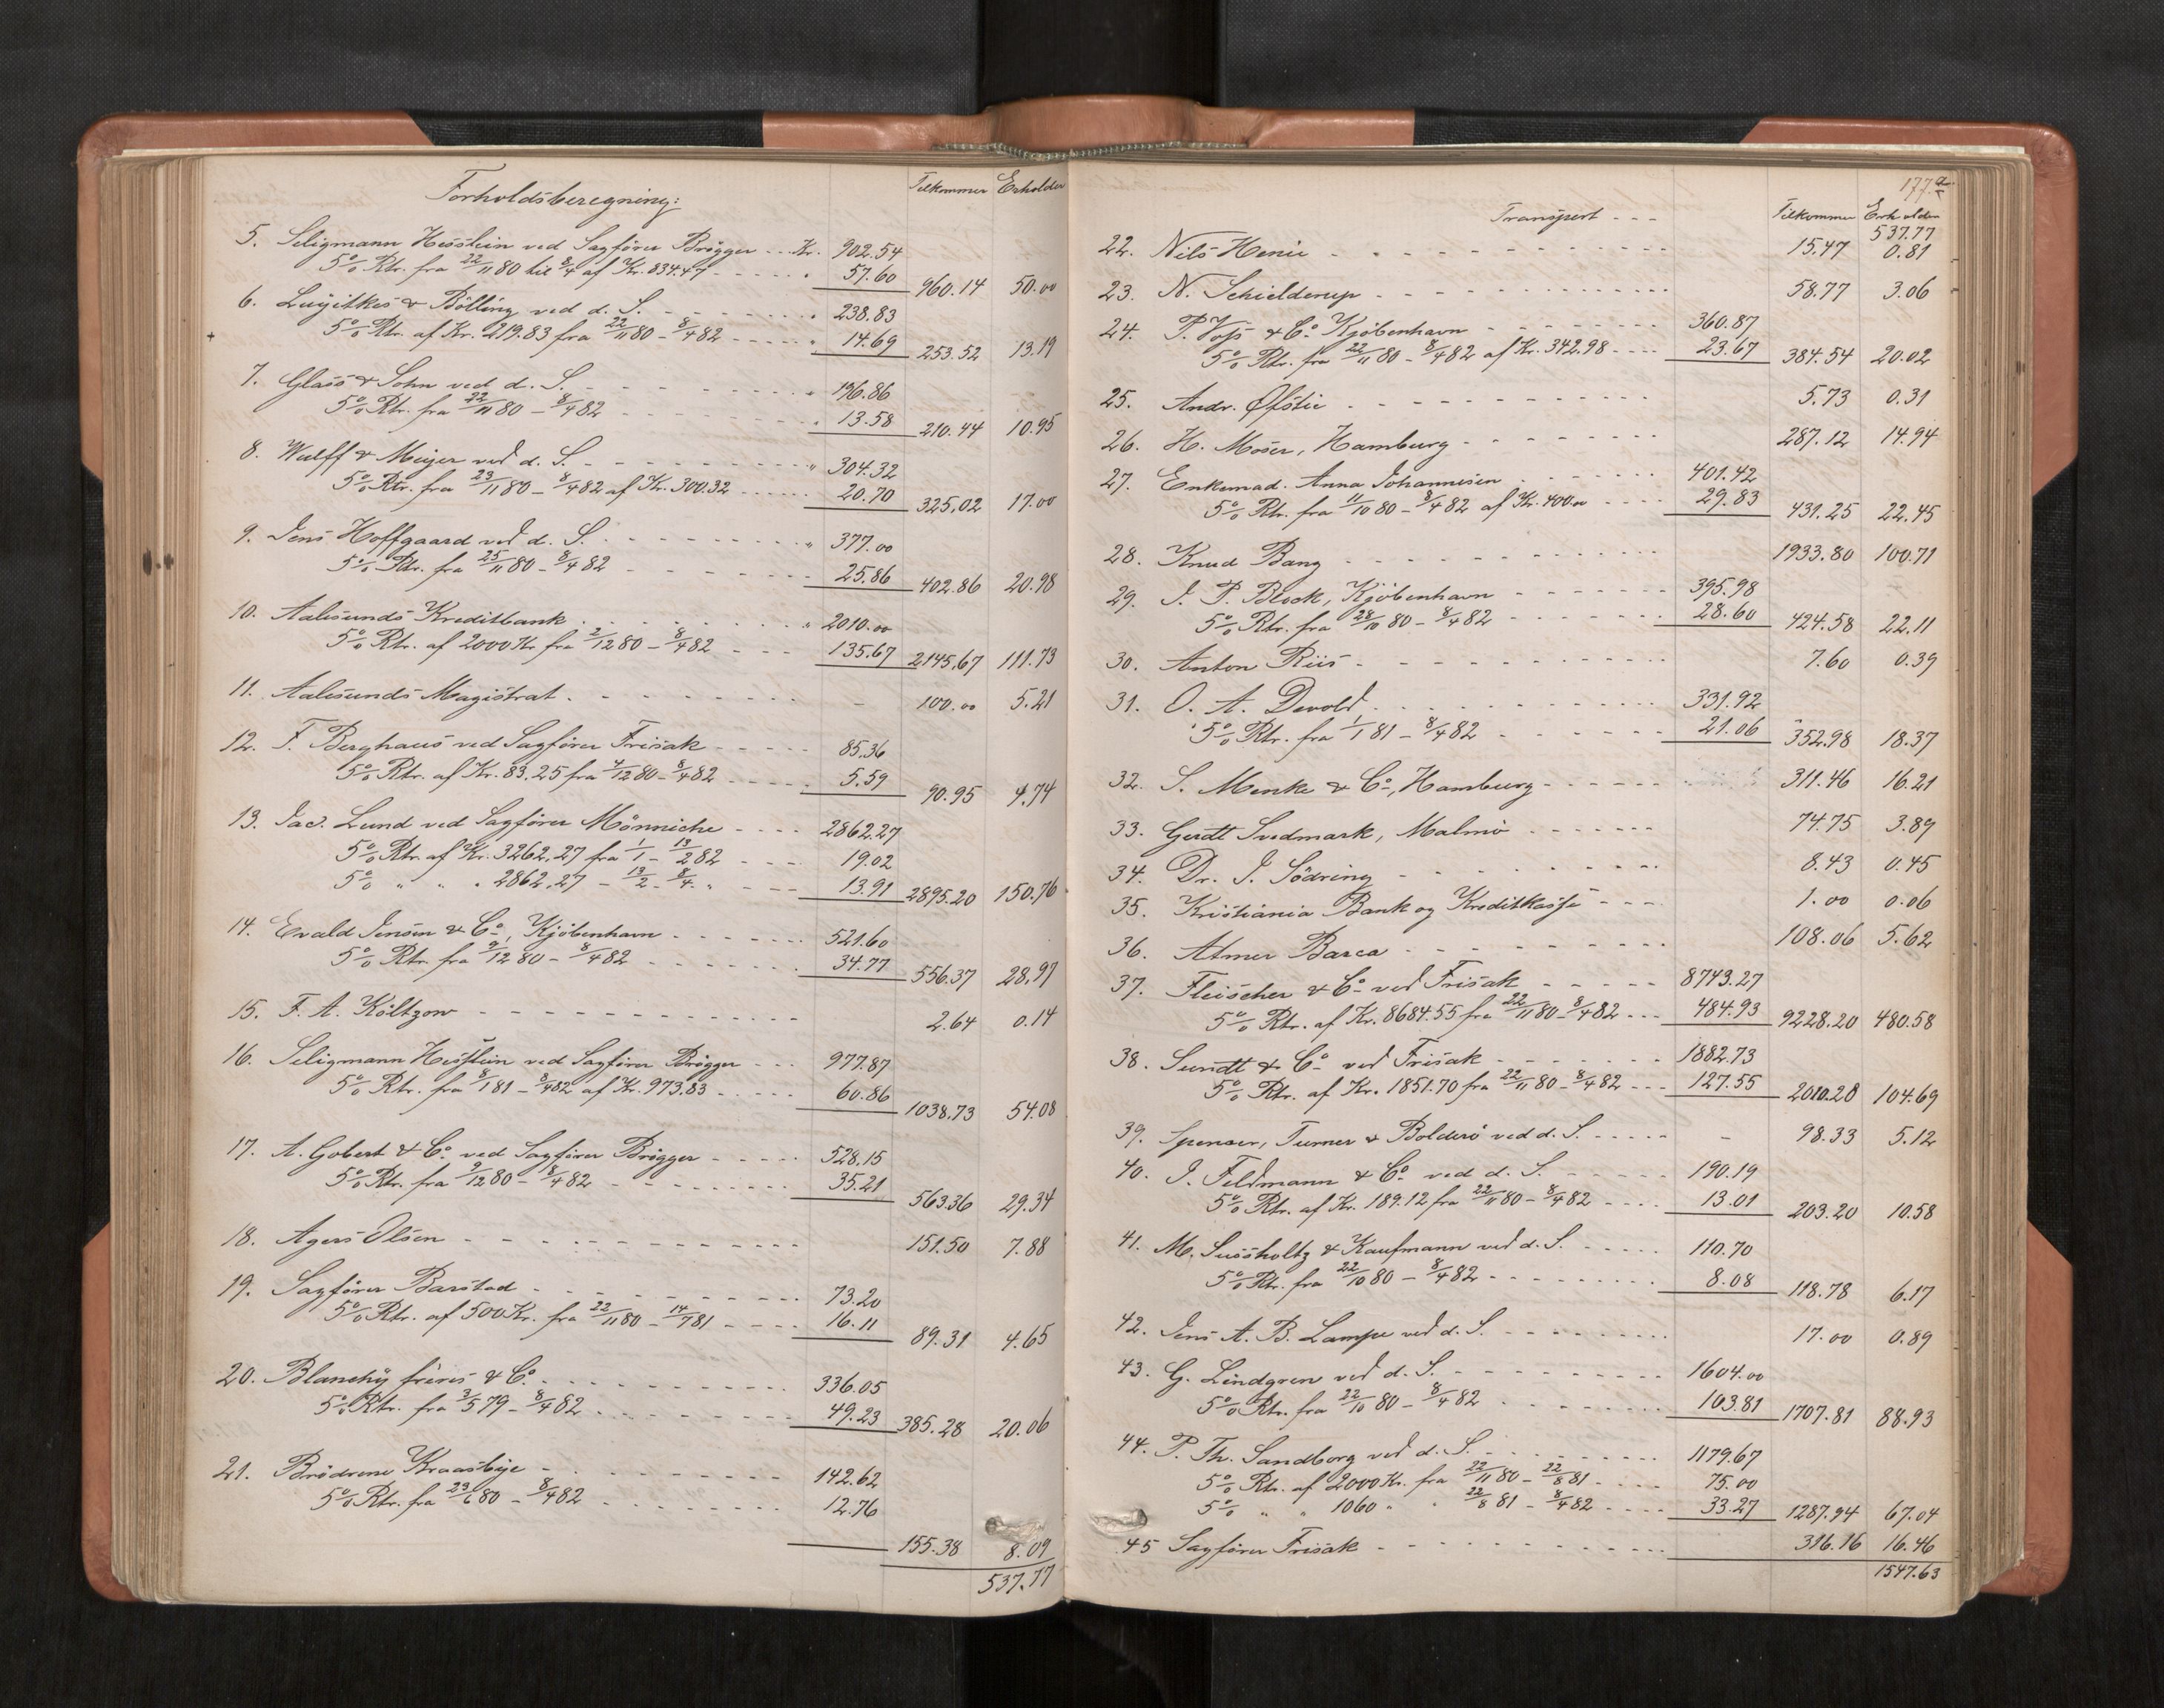 Forholdsberegning: Tilkommer Erholder
5. Seligmann Hesslein ved Sagfører Brøgger - - - Kr. 902.54
5% Rtr. fra 22/11 80 til 8/4 af Kr. 834.47 - - - - - " 57.60 960.14 50.00
6. & Bölling ved d. S. - - - - - " 238.83
5% Rtr. af Kr. 219.83 fra 22/11 80 - 8/4 82 - - - - - " 14.69 253.52 13.19
7. Glass & Sohn ved d. S. - - - - - " 196.86
5% Rtr. fra 22/11 80 - 8/4 82 - - - - - " 13.58 210.44 10.95
8. Wulff & Meijer ved d. S. - - - - - " 304.32
5% Rtr. fra 23/11 80 - 8/4 82 af Kr. 300.32 - - - - - 20.70 325.02 17.00
9. Jens Hoffgaard ved d. S. - - - - - " 377.00
5% Rtr. fra 25/11 80 - 8/4 82 - - - - - 25.86 402.86 20.98
10. Aalesunds Kreditbank - - - - - " 2010.00
5% Rtr. af 2000 Kr fra 2/12 80 - 8/4 82 - - - 135.67 2145.67 111.73
11. Aalesunds Magistrat - - - - - - 100.00 5.21
12. F. Berghaus ved Sagfører Frisak - - - - - 85.36
5% Rtr. af Kr. 83.25 fra 4/12 80 - 8/4 82 - - - - 5.59 90.95 4.74
13. Jac. Lund ved Sagfører Mönniche - - - - 2862.27
5% Rtr. af Kr. 3262.27 fra 1/1 - 13/2 82 - - - 19.02
5% " " " 2862.27 - 13/2 - 8/4 " - - - 13.91 2895.20 150.76
14. Evald Jensen & Co, Kjöbenhavn - - - - - 521.60
5% Rtr. fra 9/12 80 - 8/4 82 - - - - - 34.77 556.37 28.97
15. F. A. Költzow - - - - - 2.64 0.14
16. Seligmann Hesslein ved Sagfører Brøgger - - - 977.87
5% Rtr. fra 8/1 81 - 8/4 82 af Kr. 973.83 - - - - - 60.86 1038.73 54.08
17. A. Gobert & Co ved Sagfører Brøgger - - - - - 528.15
5% Rtr. fra 9/12 80 - 8/4 82 - - - - - 35.21 563.36 29.34
18. Agers Olsen - - - - - 151.50 7.88
19. Sagfører Barstad - - - - - 73.20
5% Rtr. af 500 Kr. fra 22/11 80 - 14/7 81 - - - - 16.11 89.31 4.65
20. Blanchÿ frères & Co. - - - - - 336.05
5% Rtr. fra 3/5 79 - 8/4 82 - - - - - 49.23 385.28 20.06
21. Brödrene Kraasbye - - - - - 142.62
5% Rtr. fra 23/6 80 - 8/4 82 - - - - - 12.76
155.38 8.09
537.77
177.a
Transport - - - Tilkommer Erholder
537.77
22. Nils Henie - - - - - 15.47 0.81
23. N. Schielderup - - - - - 58.77 3.06
24. P. Voss & Co Kjöbenhavn - - - - - 360.87
5% Rtr. fra 22/11 80 - 8/4 82 af Kr. 342.98 - - - - 23.67 384.54 20.02
25. Andr. Øfstie - - - - - 5.73 0.31
26. H. Moser, Hamburg - - - - - 287.12 14.94
27. Enkemad. Anna Johannesen - - - - - 401.42
5% Rtr. fra 11/10 80 - 8/4 82 af Kr. 400.00 - - - - 29.83 431.25 22.45
28. Knud Bang - - - - - 1933.80 100.71
29. J. P. Block, Kjöbenhavn - - - - - 395.98
5% Rtr. fra 28/10 80 - 8/4 82 - - - - - 28.60 424.58 22.11
30. Anton Riis - - - - - 7.60 0.39
31. O. A. Devold - - - - - 331.92
5% Rtr. fra 1/1 81 - 8/4 82 - - - - - 21.06 352.98 18.37
32. S. Menke & Co, Hamburg - - - - - 311.46 16.21
33. Gerdt Svedmark, Malmö - - - - - 74.75 3.89
34. Dr. J. Södring - - - - - 8.43 0.45
35. Kristiania Bank og Kreditkasse - - - 1.00 0.06
36. Atmer Barca - - - - - 108.06 5.62
37. Fleischer & Co ved Frisak - - - - - 8743.27
5% Rtr. af Kr. 8684.55 fra 22/11 80 - 8/4 82 - - - 484.93 9228.20 480.58
38. Sundt & Co ved Frisak - - - - - 1882.73
5% Rtr. af Kr. 1851.70 fra 22/11 80 - 8/4 82 - - - 127.55 2010.28 104.69
39. Spenser, Turner & Bolderö ved d. S. - - - - - - 98.33 5.12
40. J. Feldmann & Co ved d. S. - - - - - 190.19
5% Rtr. af Kr. 189.12 fra 22/11 80 - 8/4 82 - - - - 13.01 203.20 10.58
41. M. Sussholtz & Kaufmann ved d. S. - - - - - 110.70
5% Rtr. fra 22/10 80 - 8/4 82 - - - - - 8.08 118.78 6.17
42. Jens A. B. Lampe ved d. S. - - - - - 17.00 0.89
43. G. Lindgren ved d. S. - - - - - 1604.00
5% Rtr. fra 22/10 80 - 8/4 82 - - - - - 103.81 1707.81 88.93
44. P. Th. Sandborg ved d. S. - - - - - 1179.67
5% Rtr. af 2000 Kr. fra 22/11 80 - 22/8 81 - - - - 75.00
5% " " 1060 " " 22/8 81 - 8/4 82 - - - - 33.27 1287.94 67.04
45 Sagfører Frisak - - - - - 316.16 16.46
1547.63